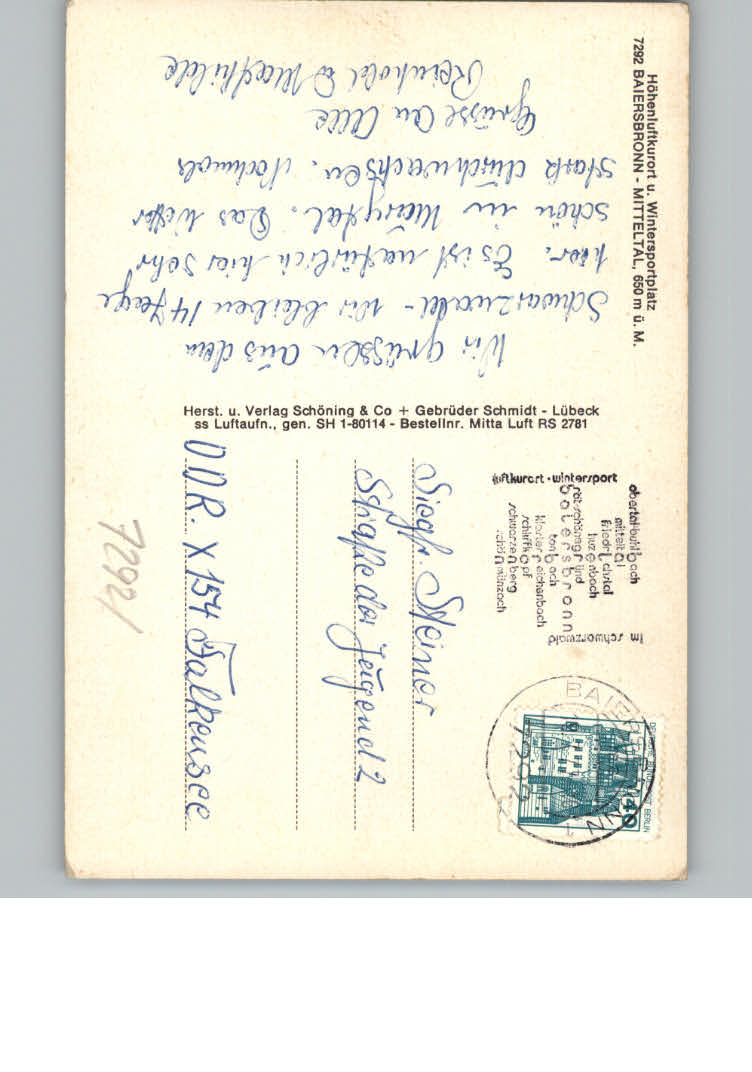 7292 BAIERSBRONN - MITTELTAL, 650 m ü. M.
Höhenluftkurort u. Wintersportplatz
Wir grüssen aus dem
Schwarzwald - wir bleiben 14 Tage
hier. Es ist natürlich hier sehr
schön im Murgtal. Das Wetter
stark durchwachsen. Nochmals
Grüsse an Alle
Reinhold & Mathilde
Herst. u. Verlag Schöning & Co + Gebrüder Schmidt - Lübeck
ss Luftaufn., gen. SH 1-80114 - Bestellnr. Mitta Luft RS 2781
luftkurort · wintersport
obertal-buhlbach
mitteltal
friedrichstal
huzenbach
röt-schönegründ
baiersbronn
tonbach
klosterreichenbach
schliffkopf
schwarzenberg
schönmünzach
im schwarzwald
BAIERSBRONN
7292
DEUTSCHE BUNDESPOST BERLIN
40
Siegfr. Steiner
Straße der Jugend 2
DDR. X 154 Falkensee
7292/